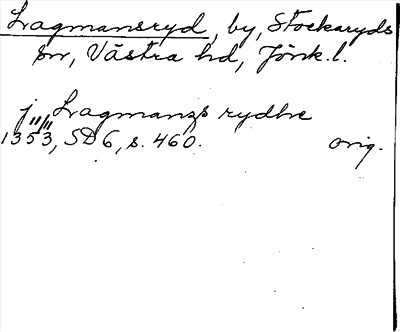 Lagmansryd, by, Stockaryds
sn, Västra hd, Jönk. l.
j "Lagmanzs rydhe"
1353, SD 6, s. 460. orig.